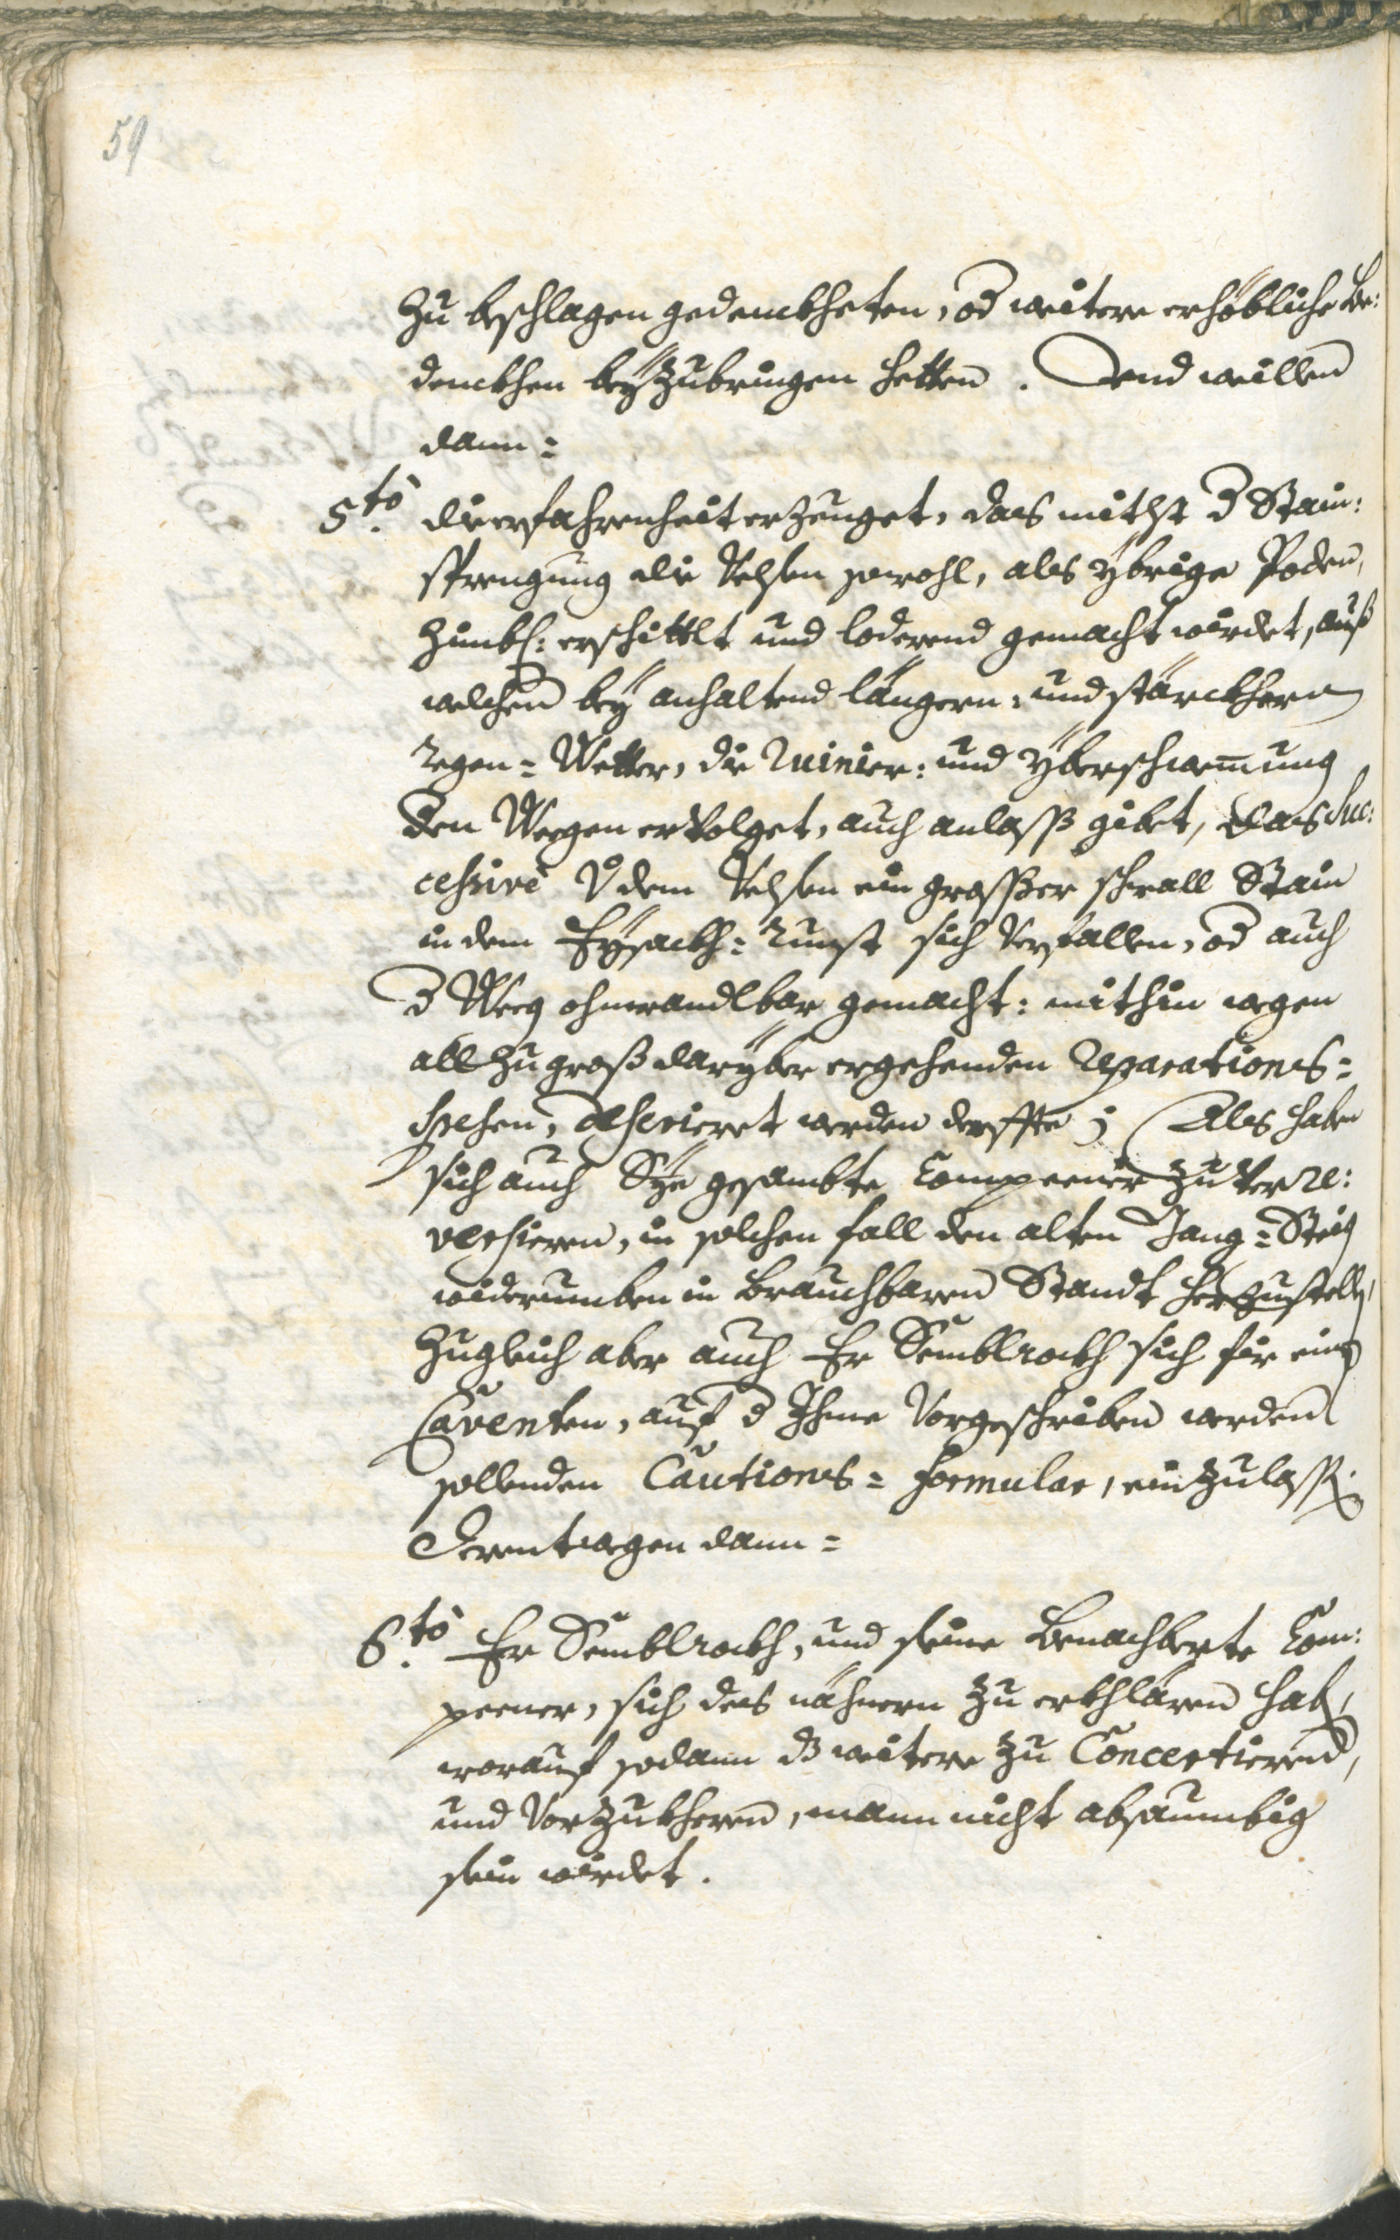 59
zu beschlagen gedenckheten, od weitere erhöbliche be:
denckhen beyzubringen hetten. Und weillen
dann=
5to. die erfahrenheit erzeuget, das mitlst d Stain:
sprengung die Velsen sowohl, als ybrige Poden,
zimbl: erschittlt und loderend gemacht wirdet, auß
welchen bey anhaltend längern: und stärckhern
Regen=Wetter, die Ruinier: und yberschwemung
den Weegen ervolget, auch anlass gibt, das suc:
cessive v dem Velsen ein grosser schrall Stain
in dem Eysackh=Runst sich verfallen, od auch
d Weeg ohnwandlbar gemacht: mithin wegen
all zu groß daryber ergehenden Reparations=
spesen, deserieret werden derffte; Als haben
sich auch Sye gesambte Compareneir zu ver re:
versieren, in solchen fall den alten Gang=Steig
widerumben in brauchbaren Standt herzustelle,
zugleich aber auch Er Semblrockh sich für ein
Caventen, auf d Ihme vorgeschriben werden
sollenden Cautions=formular, einzulass.
Derentwegen dann=
6to. Er Semblrockh, und seine benachberte Com:
parener, sich des nähnern zu erkhlären hab,
worauf sodann dz weitere zu Concertieren,
und vorzukheren, mann nicht absaumbig
sein wirdet.